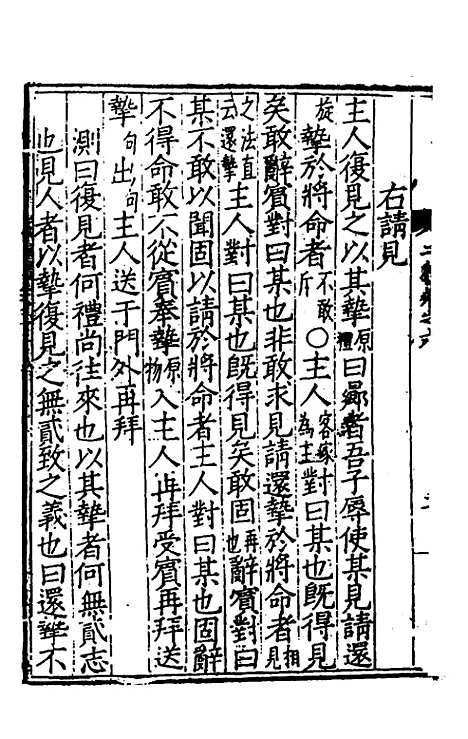 右請見
主人復見之以其摯原禮曰曏者吾子辱使某見請還
摯於將命者不敢斥○主人客嫁為主對曰某也既得見
矣敢辭賓對曰某也非敢求見請還摯於將命者相見
之法直云還摯主人對曰某也既得見矣敢固再也辭賓對曰
某不敢以聞固以請於將命者主人對曰某也固辭
不得命敢不從賓奉摯原物入主人再拜受賓再拜送
摯句出句主人送于門外再拜
測曰復見者何禮尚往來也以其摯者何無貳志
也見人者以摯復見之無貳致之義也曰還摯不